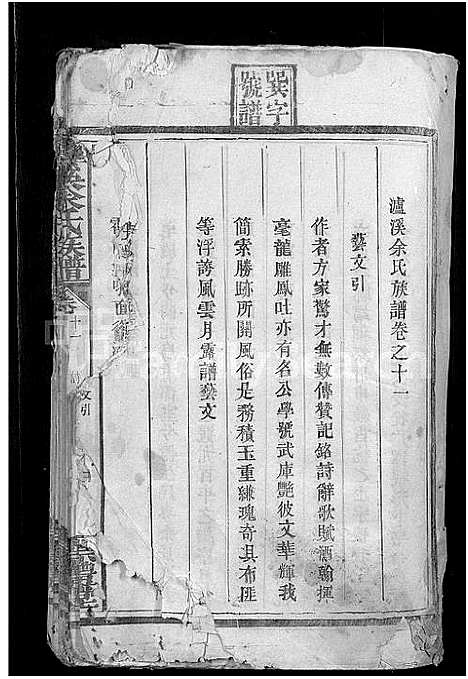 巽字
號譜
瀘溪余氏族譜卷之十一
藝文引
作者方家驚才無數傳贊記銘詩辭歌賦酒翰揮
毫龍雕鳳吐亦有名公學號武庫艷彼文華輝我
簡索勝跡所關風俗是務積玉重縑瑰奇具布匪
等浮誇風雲月露譜藝文
余氏族譜
卷
十一
文引